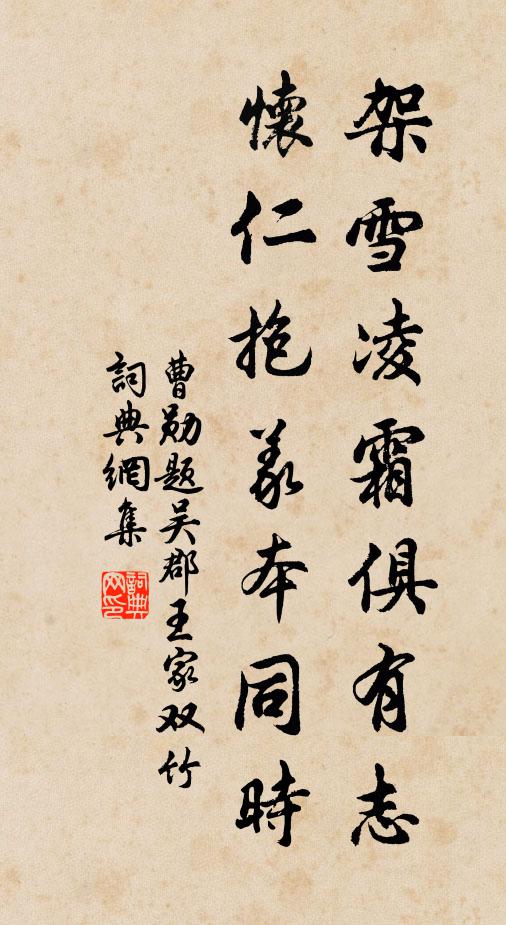 架雪凌霜俱有志
懷仁抱義本同時
曹勛題吴郡王家双竹
詞典網集
詞典网印